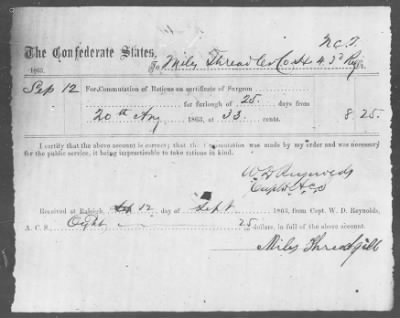 N.C.T.
The Confederate States,
To Miles Threadgill Co. H 43d Reg
1863. Dr.
Sep 12 For Commutation of Rations on certificate of Surgeon
for furlough of 25 days from
20th Aug 1863, at 33 cents. 8 25
I certify that the above account is correct; that the commutation was made by my order and was necessary
for the public service, it being impracticable to take rations in kind.
W D Reynolds
Capt & A.C.S
Received at Raleigh, 12 day of Sept 1863, from Capt. W. D. Reynolds,
A. C. S., Eight 25 dollars, in full of the above account.
Miles Threadgill